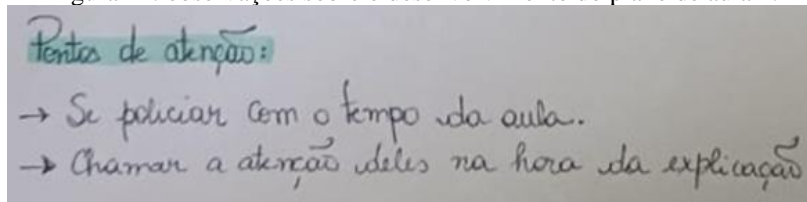 Pontos de atenção:
→ Se policiar com o tempo da aula.
→ Chamar a atenção deles na hora da explicação